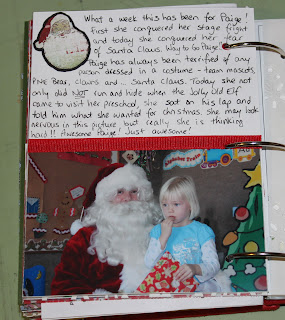 What a week this has been for Paige!
First she conquered her stage fright
and today she conquered her fear
of Santa Claus. Way to Go Paige!
Paige has always been terrified of any
person dressed in a costume - team mascots,
Pipe Bear, Clowns and ... Santa Claus. Today she not
only did NOT run and hide when the Jolly Old Elf
came to visit her preschool, she sat on his lap and
told him what she wanted for christmas. She may look
nervous in this picture but really she is thinking
hard!! Awesome Paige! Just awesome!